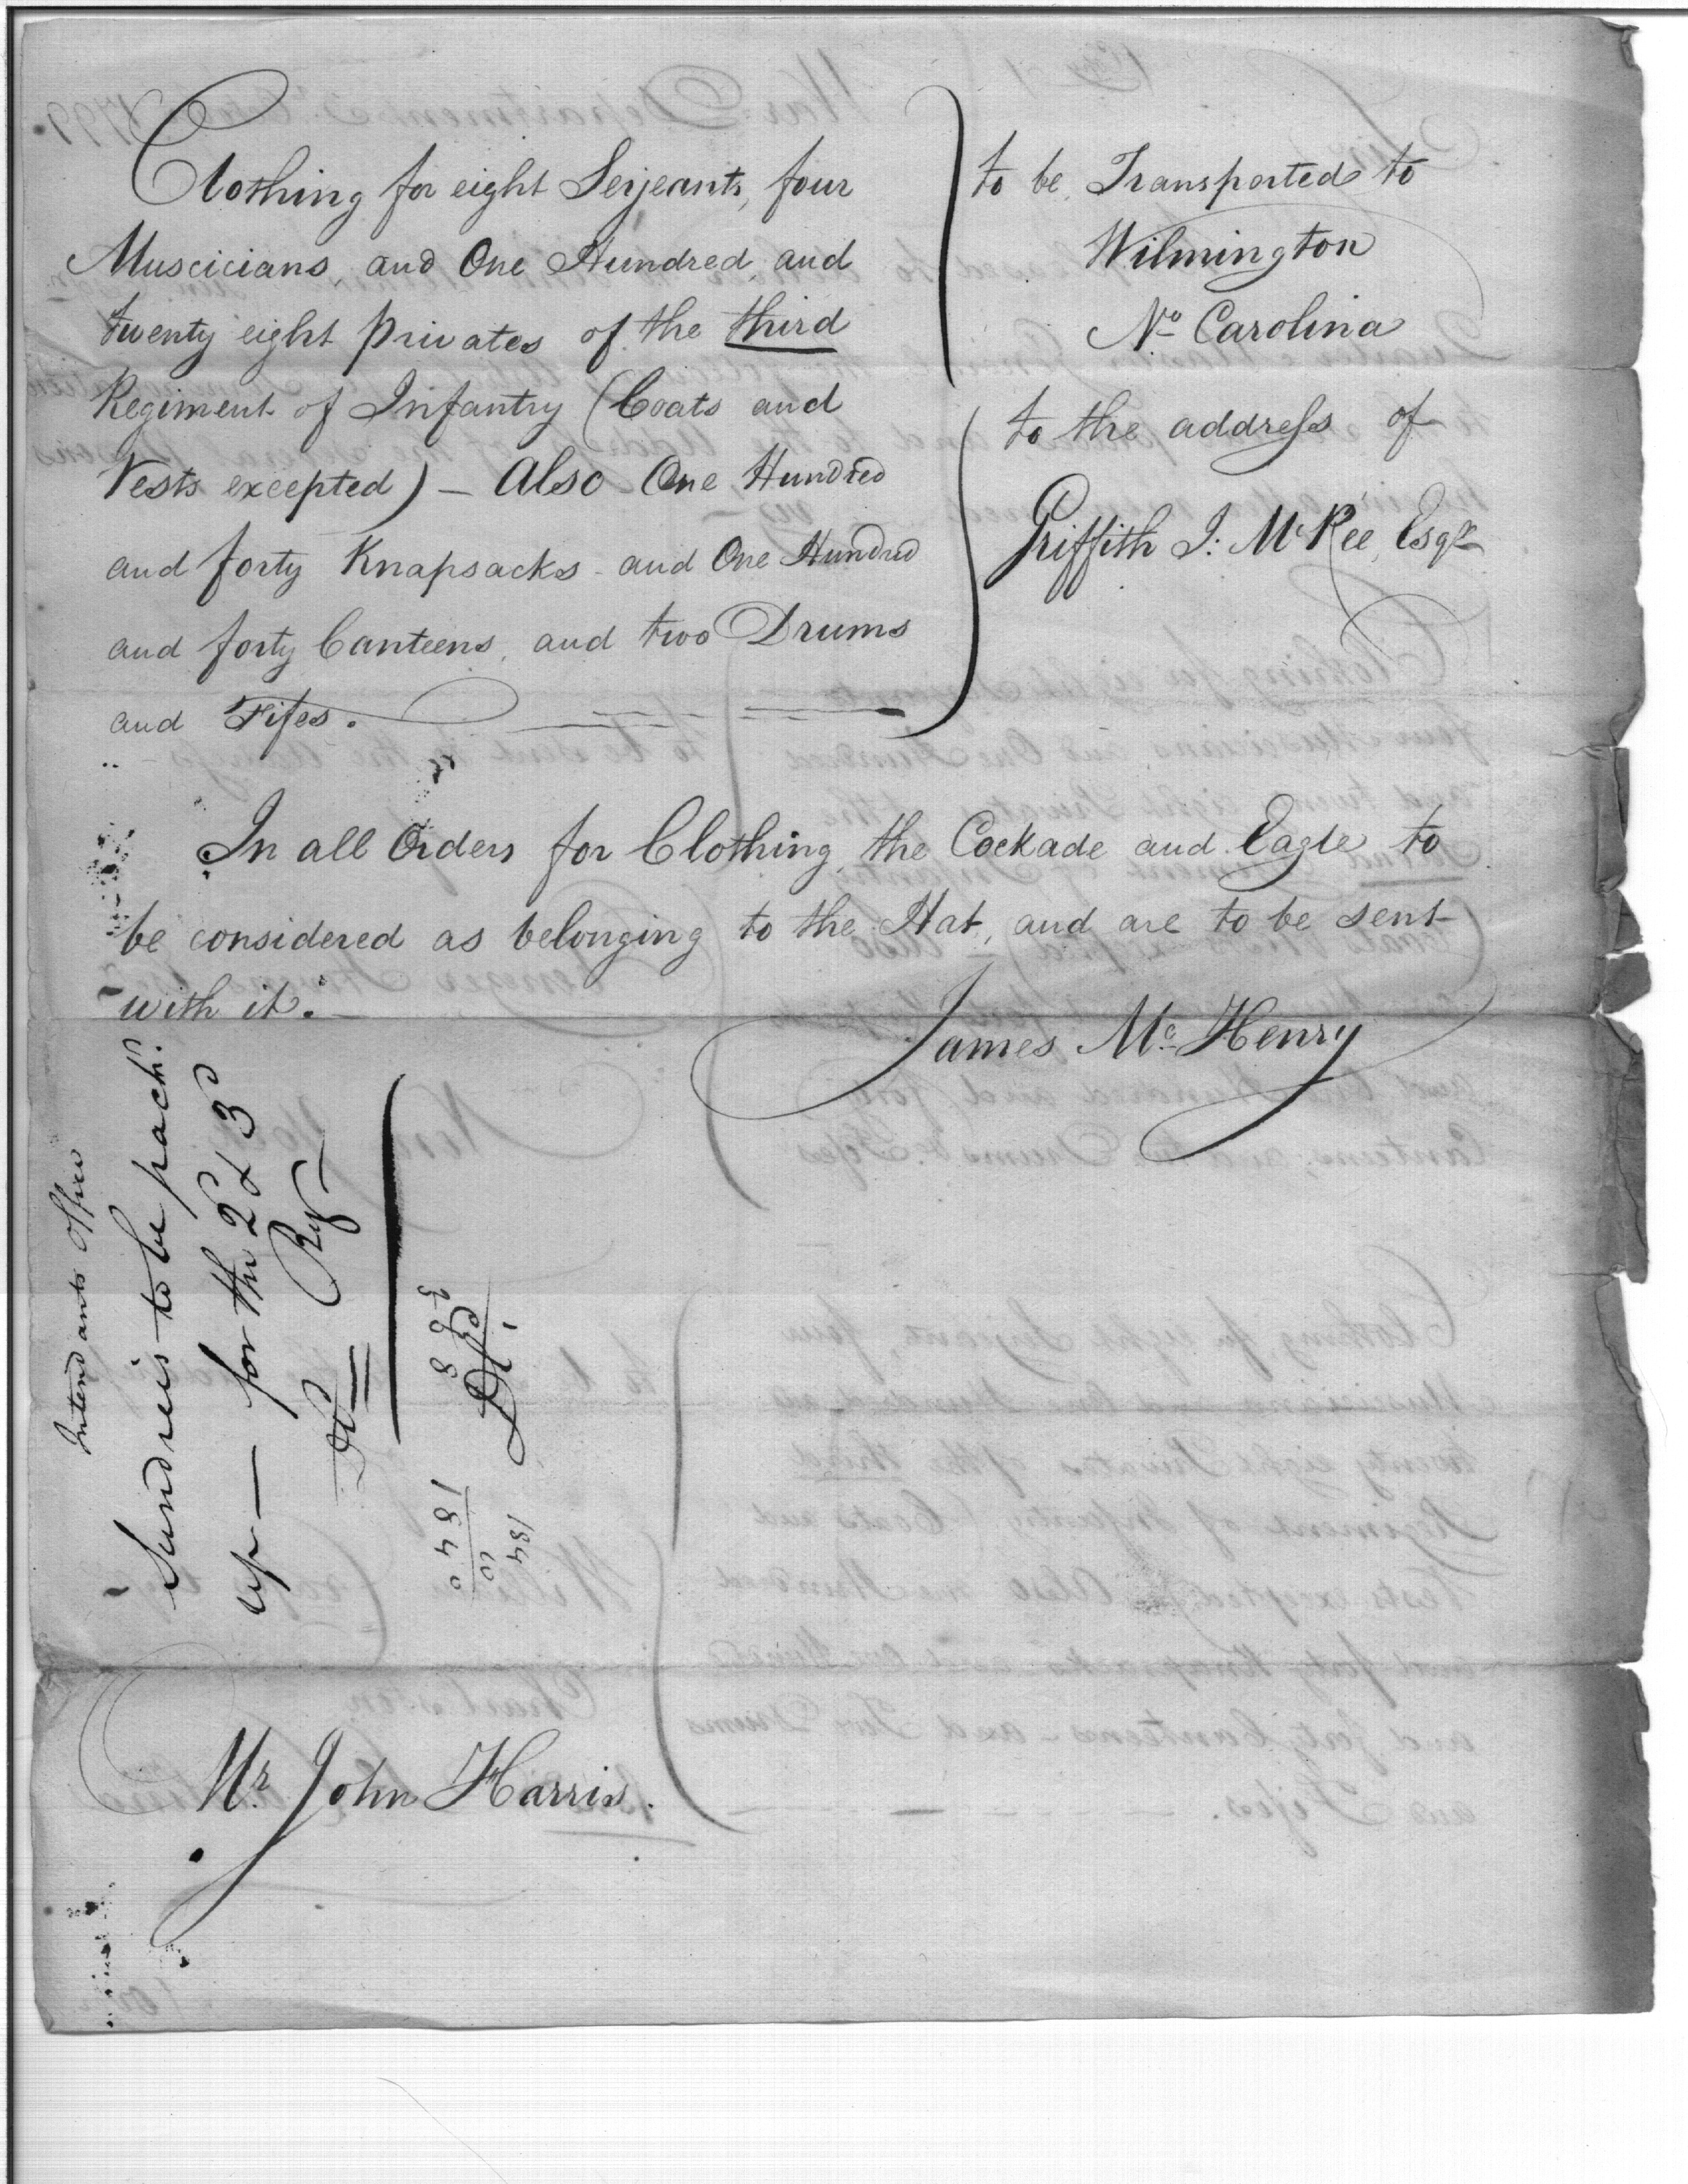 Clothing for eight Serjeants, four
Muscicians, and One Hundred and
twenty eight privates of the third
Regiment of Infantry (Coats and
Vests excepted) — also One Hundred
and forty Knapsacks - and One Hundred
and forty Canteens, and two Drums
and Fifes.
to be Transported to
Wilmington
No Carolina
to the address of
Griffith J: McRee, Esqr
In all Orders for Clothing, the Cockade and Eagle to
be considered as belonging to the Hat, and are to be sent
with it.
James McHenry
Intendants Office
Sundries to be pack.d
up — for the 2d & 3d
Reg
184
10
1840
Mr. John Harris.